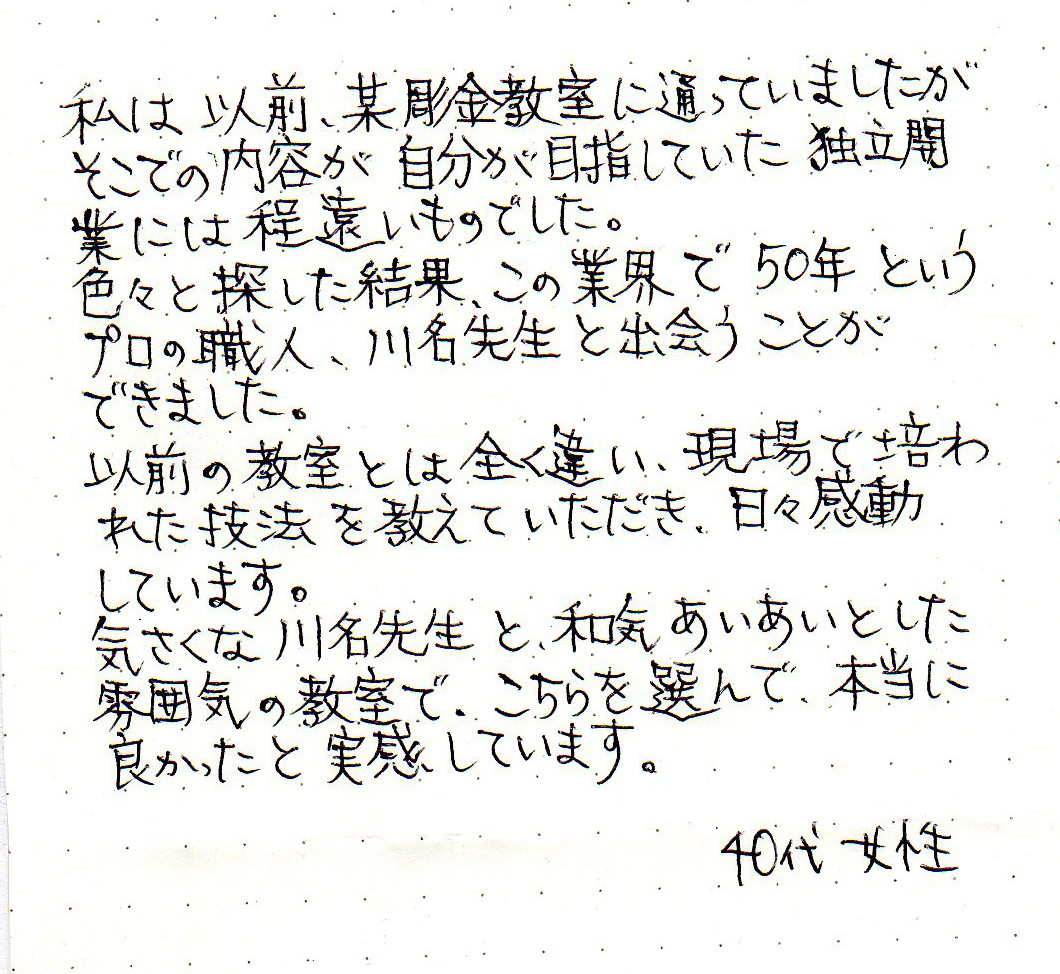 私は以前、某彫金教室に通っていましたが
そこでの内容が自分が目指していた独立開
業には程遠いものでした。
色々と探した結果、この業界で50年という
プロの職人、川名先生と出会うことが
できました。
以前の教室とは全く違い、現場で培わ
れた技法を教えていただき、日々感動
しています。
気さくな川名先生と、和気あいあいとした
雰囲気の教室で、こちらを選んで、本当に
良かったと実感しています。
40代 女性